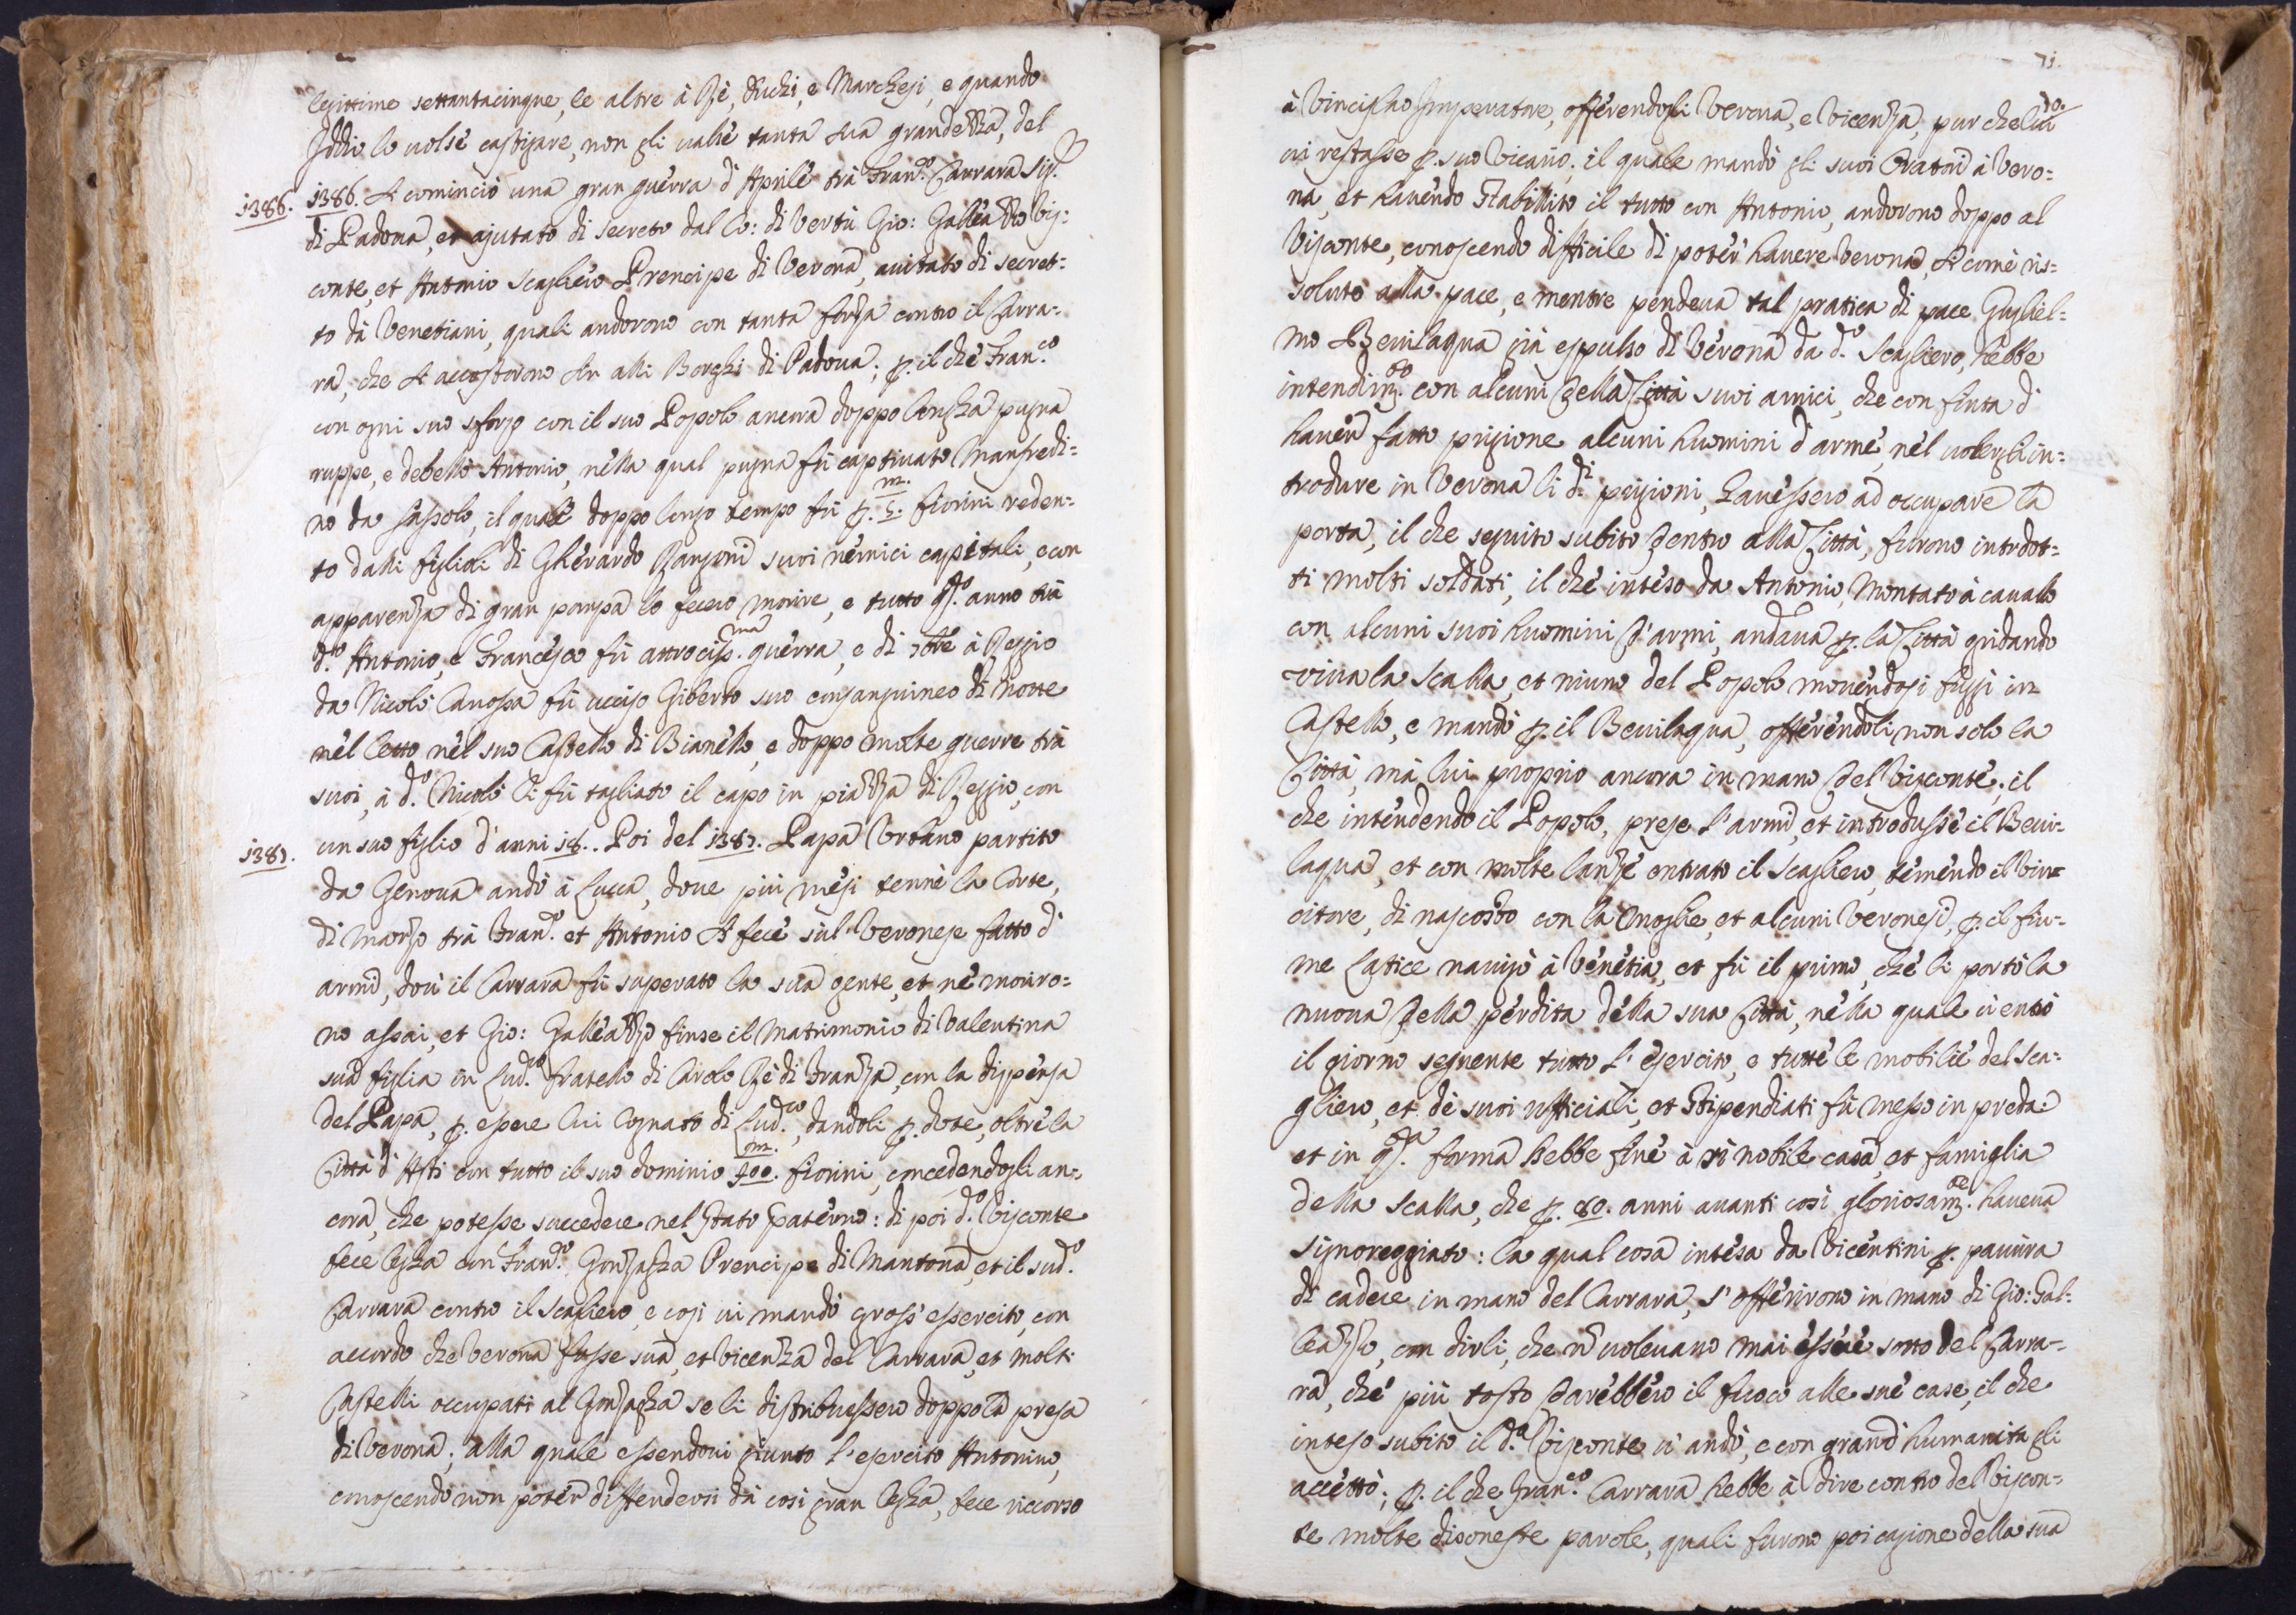 legittime settantacinque, le altre à Rè, Duchi, e Marchesi, e quando
Iddio lo uolse castigare, non gli ualse tanta sua grandezza, del
1386. 1386. Si cominciò una gran guerra d'Aprile trà Fran.co Carrara Sig.r
di Padoua, et ajutato di secreto dal Co: di Vertù Gio: Galleazzo Vis:
conte, et Antonio Scagliero Prencipe di Verona, auitato di secret:
to dà Venetiani, quali andorono con tanta forza contro il Carra:
ra, che si accostorono sin alli Borghi di Padoua; p. il che Fran.co
con ogni suo sforzo con il suo Popolo ancora doppo longha pugna
ruppe, e debellò Antonio, nella qual pugna fù captiuato Manfredi:
no da Sassolo, il quale doppo longo tempo fù p. 5.m fiorini reden:
to dalli figlioli di Gherardo Rangoni suoi nemici capitali, e con
apparenza di gran pompa lo fecero morire, e tutto q.to anno trà
d.o Antonio, e Francesco fù atrociss.ma guerra, e di 7bre à Reggio
da Nicolò Canossa fù ucciso Giberto suo consanguineo di notte
nel letto nel suo Castello di Bianello, e doppo molte guerre trà
suoi, à d.o Nicolò li fù tagliato il capo in piazza di Reggio, con
1387. un suo figlio d'anni 18.. Poi del 1387. Papa Vrbano partito
da Genoua andò à Lucca, doue più mesi tenne la Corte,
di marzo trà Fran.co et Antonio si fece sul Veronese fatto d'
armi, doue il Carrara fù superato la sua gente, et ne moriro:
no assai, et Gio: Galleazzo finse il Matrimonio di Valentina
sua figlia in Lud.co fratello di Carolo Rè di Franza, con la dispensa
del Papa, p. essere lui cognato di Lud.co, dandoli p. dote, oltre la
Città d'Asti con tutto il suo dominio 400.m fiorini, concedendogli an:
cora, che potesse succedere nel stato paterno: di poi d.o Visconte
fece legha con Fran.co Gonzagha Prencipe di Mantoua, et il sud.o
Carrara contro il Scagliero, e cosi ui mandò gross'essercito, con
accordo che Verona fusse sua, et Vicenza del Carrara, et molti
Castelli occupati al Gonzagha se li distribuessero doppo la presa
di Verona; alla quale essendoui giunto l'esercito Antonino,
conoscendo non poter diffendersi dà così gran legha, fece riccorso
71.
à Vincislao Imperatore, offerendogli Verona, e Vicenza, pur che lui
ui restasse p. suo Vicario. il quale mandò gli suoi Oratori à Vero:
na, et hauendo stabillito il tutto con Antonio, andorono doppo al
Visconte, conoscendo difficile di poter hauere Verona, si come ris:
soluto alla pace, e mentre pendeua tal pratica di pace Gugliel:
mo Beuilaqua già espulso di Verona da d.o Scagliero, hebbe
intendim.to con alcuni della Città suoi amici, che con finta d'
hauer fatto prigione alcuni huomini d'arme, nel uolergli in:
trodure in Verona li d.ti prigioni, hauessero ad occupare la
porta, il che seguito subito dentro alla Città, furono introdot:
ti molti soldati, il che inteso da Antonio, montato à cauallo
con alcuni suoi huomini d'armi, andaua p. la Città gridando
viua la Scalla, et niuno del Popolo mouendosi fuggi in
Castello, e mandò p. il Beuilaqua, offerendoli non solo la
Città, mà lui proprio ancora in mano del Visconte; il
che intendendo il Popolo, prese l'armi, et introdusse il Beui:
laqua, et con molte lanze entrato il Scagliero, temendo il Vin:
citore, di nascosto con la Moglie, et alcuni Veronesi, p. il fiu:
me Latice nauigò à Venetia, et fù il primo, che li portò la
nuoua della perdita della sua Città, nella quale ui entrò
il giorno seguente tutto l'esercito, e tutte le mobilie del Sca:
gliero, et de suoi ufficiali, et stipendiati fù messo in preda:
et in q.ta forma hebbe fine à sì nobile casa, et famiglia
della Scalla, che p. 80. anni auanti così gloriosam.te haueua
signoreggiato: la qual cosa intesa da Vicentini p. pauura
di cadere in mano del Carrara, s'offerirono in mano di Gio: Gal:
leazzo, con dirli, che ñ uoleuano mai essere sotto del Carra:
ra, che più tosto darebbero il fuoco alle sue case, il che
inteso subito il d.o Visconte ui andò, e con grand'humanita gli
accettò; p. il che Fran.co Carrara hebbe à dire contro del Viscon:
te molte disoneste parole, quali furono poi cagione della sua